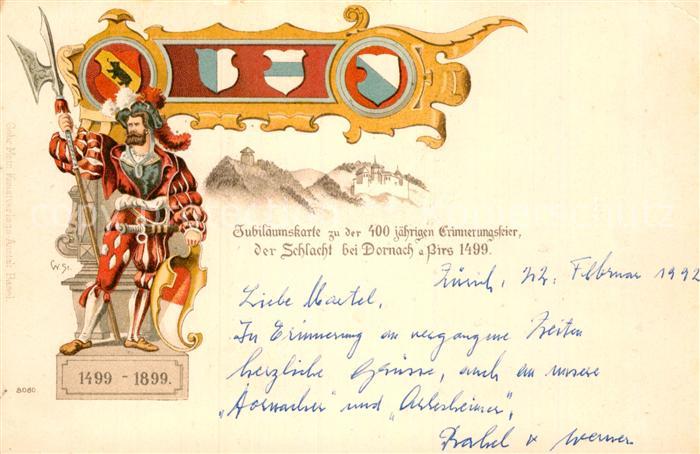 Jubiläumskarte zu der 400 jährigen Erinnerungsfeier,
der Schlacht bei Dornach a/Birs 1499.
Zürich, 22. Februar 1992
Liebe
In Erinnerung an vergangene Zeiten
herzliche Grüsse, auch an unsere
„Dornacher" und „Arlesheimer",
& Werner
W. St.
1499 - 1899.
8080.